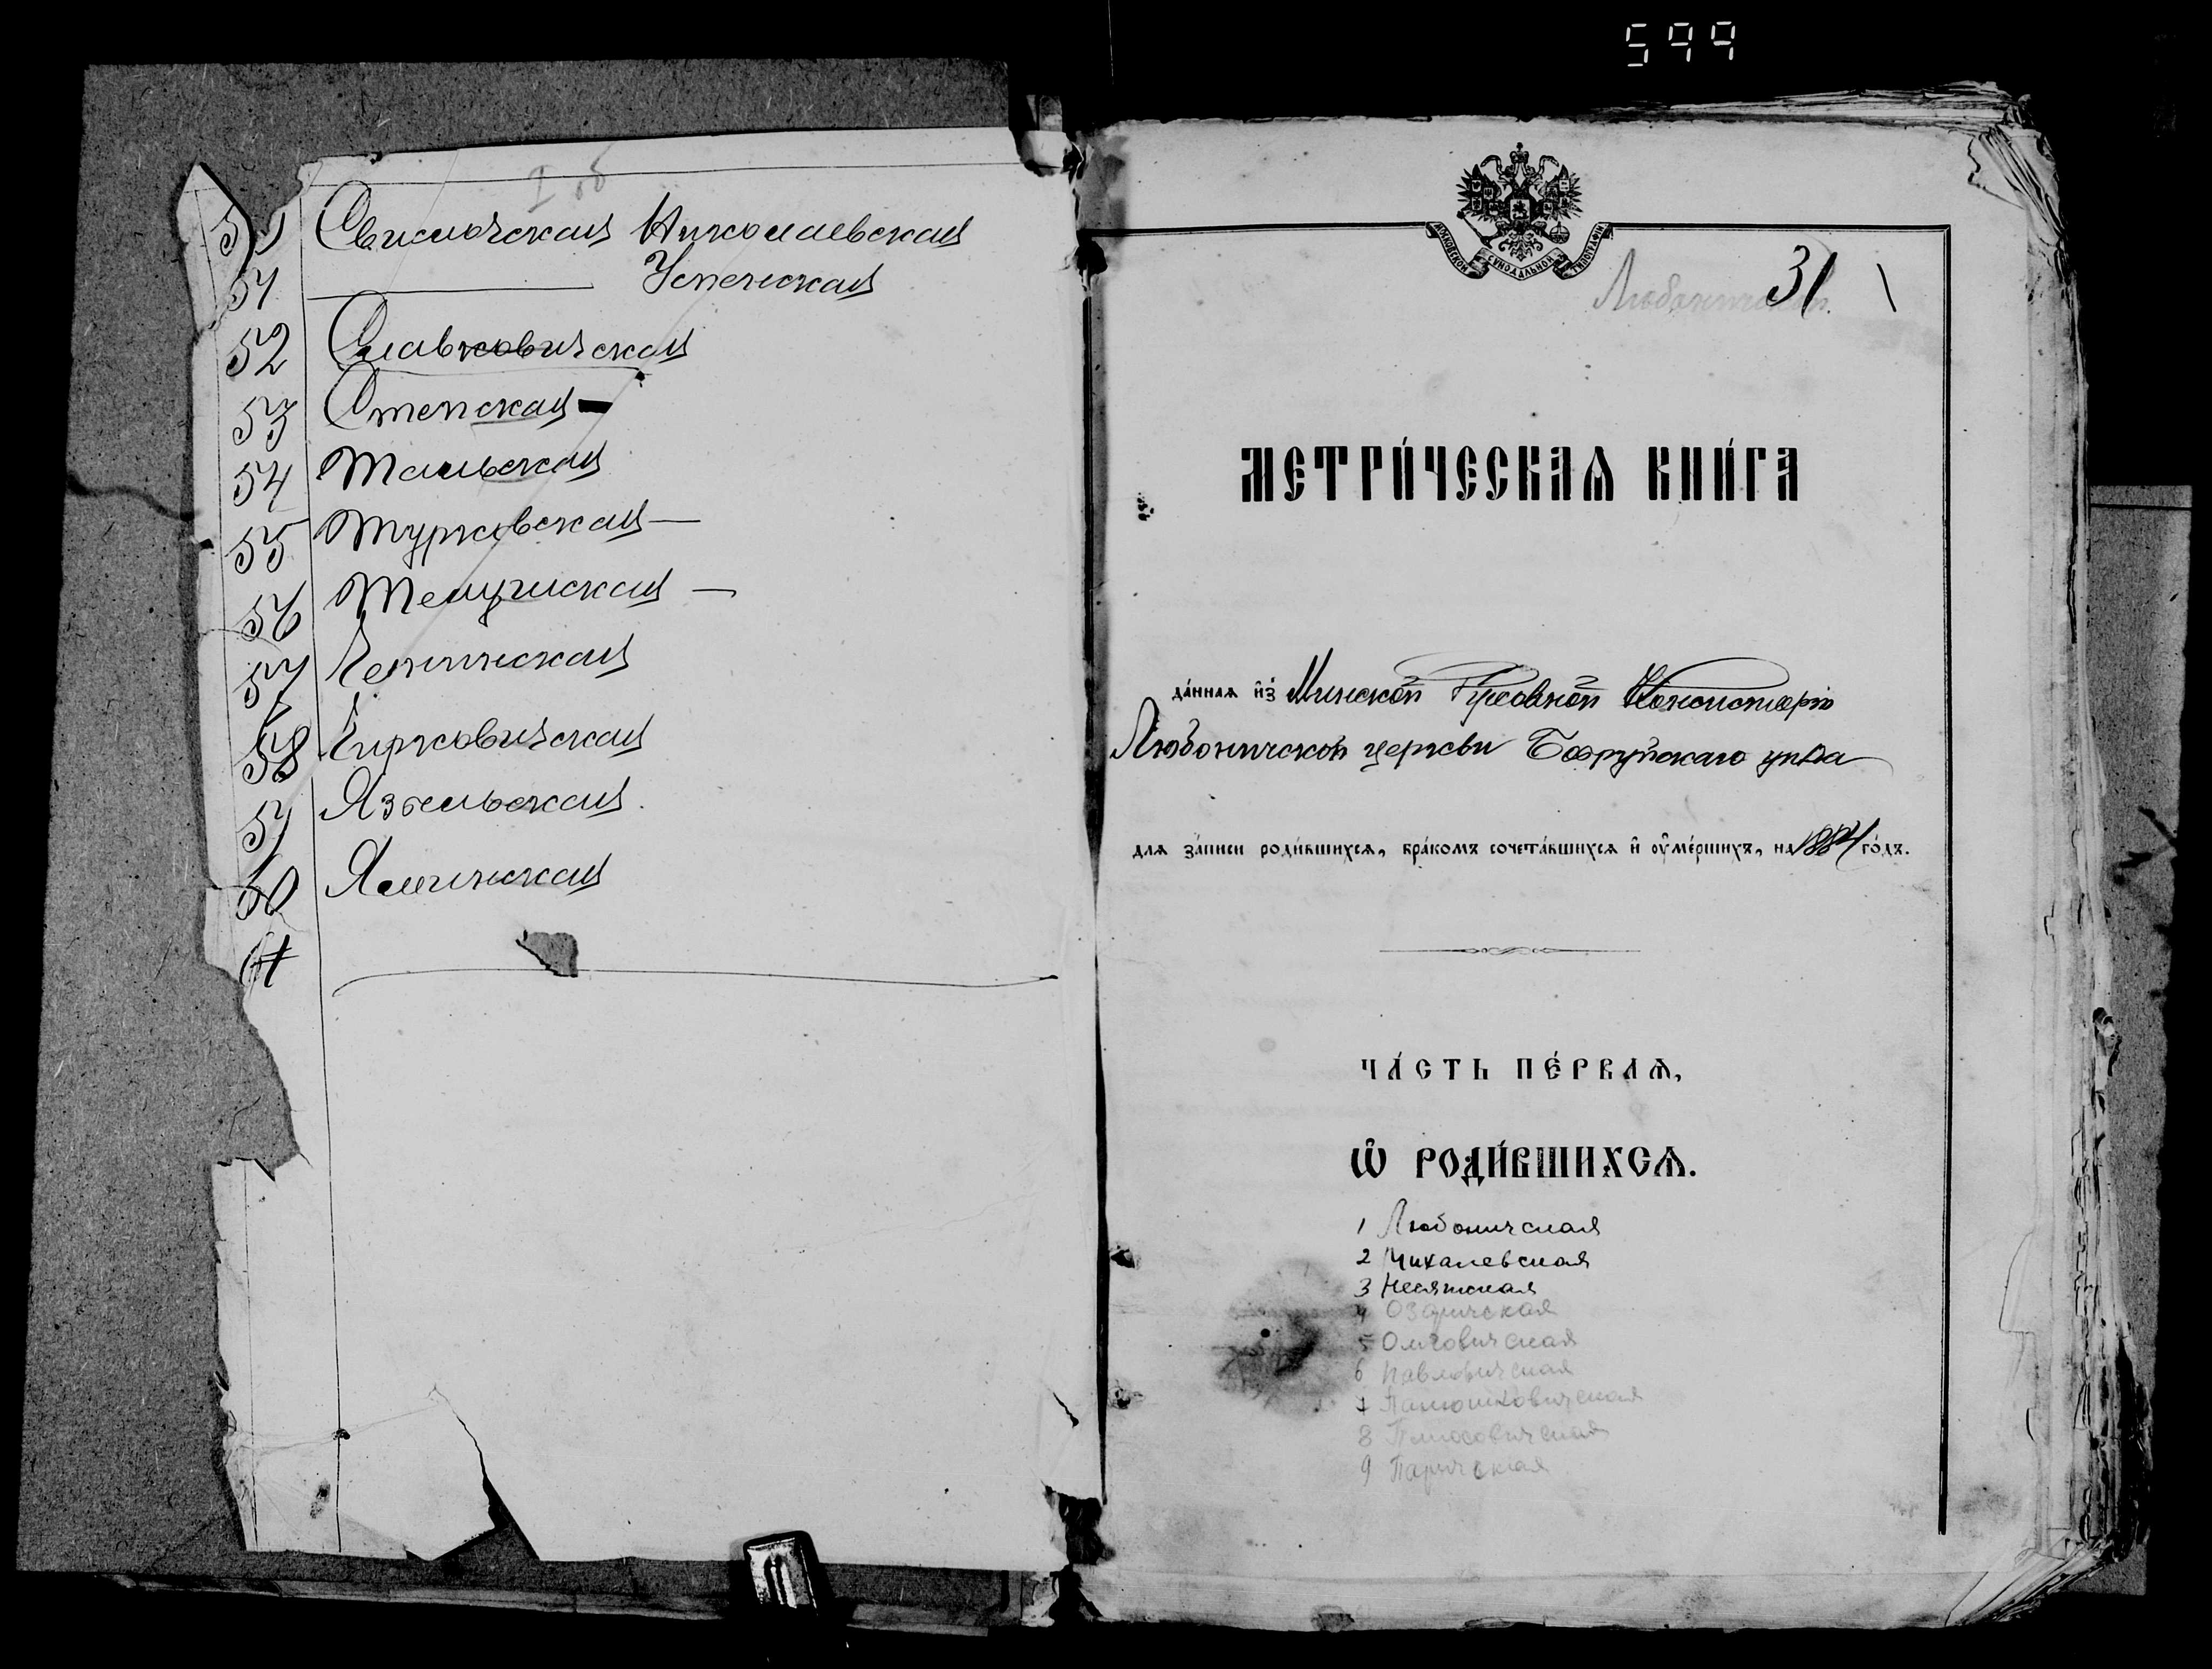 599
I об
50 Свислочская Николаевская
51 Успенская
52 Славковичская
53 Степская
54 Тальская
55 Турковская
56 Телушская
57
58 Чирковичская
59 Языльская
60 Ясенская
61
МОСКОВСКОЙ СѴНОДАЛЬНОЙ ТИПОГРАФІИ
31 1
МЕТРИ́ЧЕСКАѦ КНИ́ГА
да́нная и҆з̾ Минской Духовной Консисторіи
Любоничской церкви Бобруйскаго уѣзда
для за́писи роди́вшихся, бра́комъ сочета́вшихся и҆ оу҆ме́ршихъ, на 1884 го́дъ.
ЧА́СТЬ ПЕ́РВАѦ,
Ѡ҆ РОДИ́ВШИХСѦ.
1 Любоничская
2 Михалевская
3 Несятская
4 Озаричская
5 Омговичская
6 Павловичская
7 Панюшковичская
8 Плюсовичская
9 Паричская